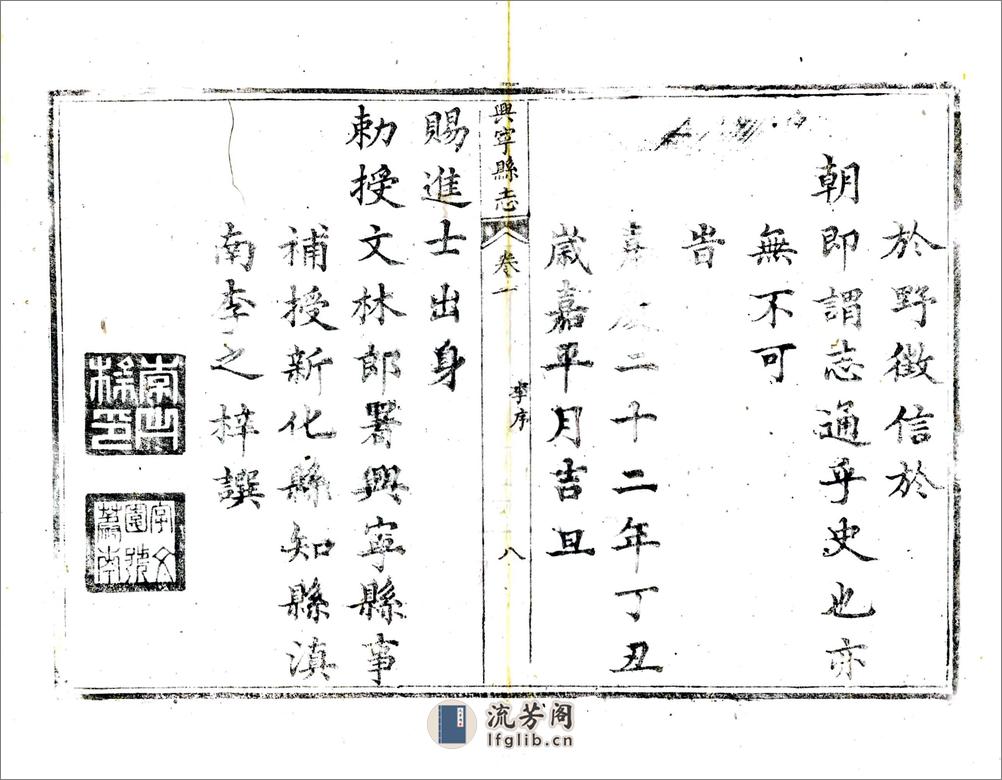 於野徵信於
朝即謂志通乎史也亦
無不可
旹
嘉慶二十二年丁丑
歲嘉平月吉旦
興寧縣志
卷一
李序
八
賜進士出身
勅授文林郎署興寧縣事
補授新化縣知縣滇
南李之梓撰
流芳阁
lfglib.cn